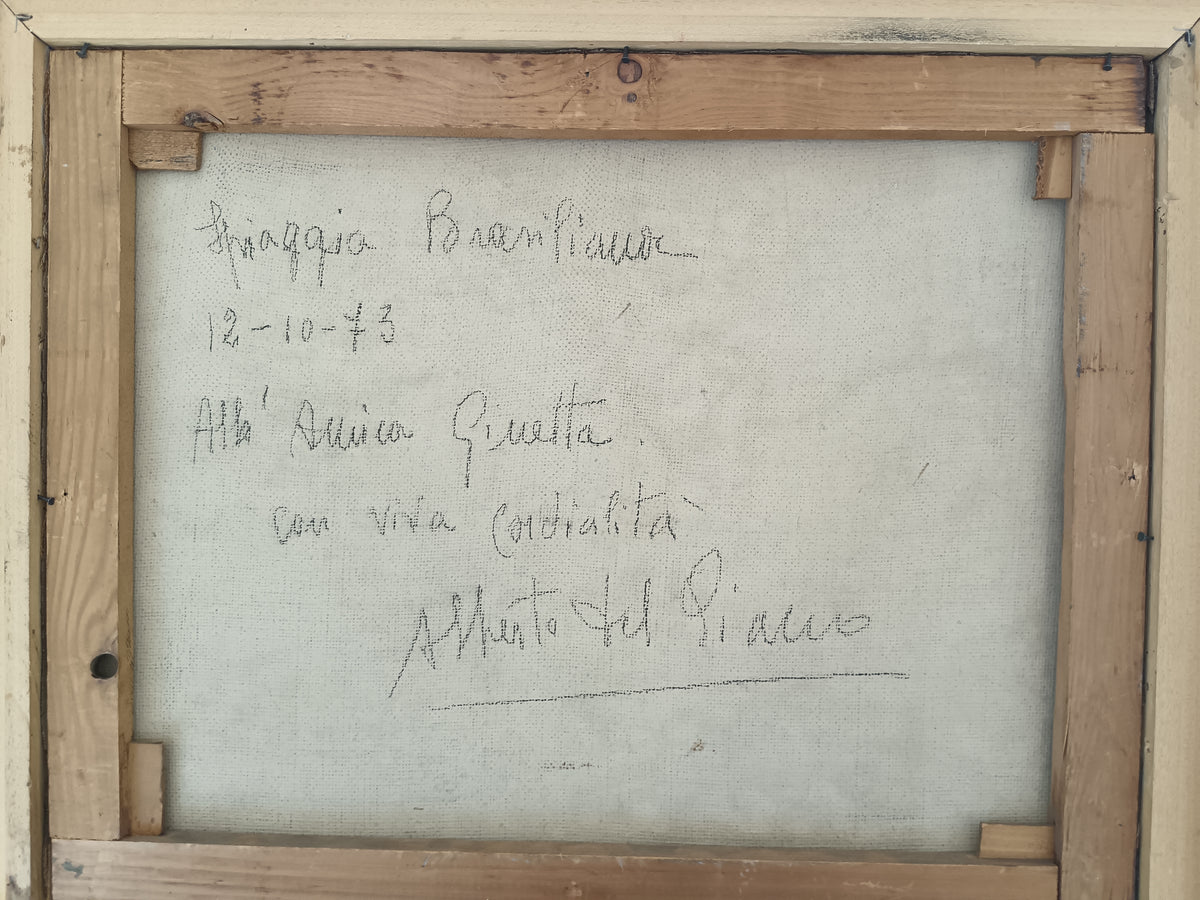 Spiaggia Brasiliana
12-10-73
All' Amica Ginetta.
con viva cordialità
Alberto del Piano